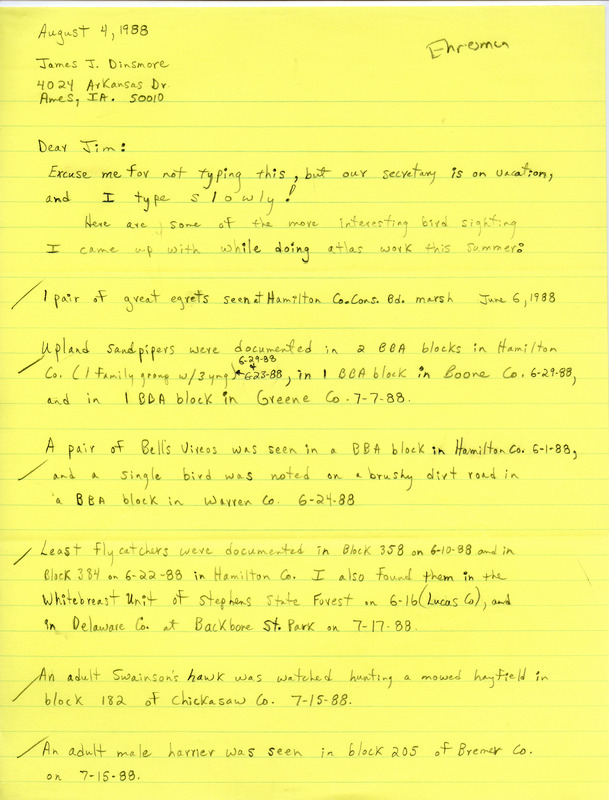 August 4, 1988
Ehresman
James J. Dinsmore
4024 Arkansas Dr.
Ames, IA. 50010
Dear Jim:
Excuse me for not typing this, but our secretary is on vacation,
and I type s l o w l y !
Here are some of the more interesting bird sighting
I came up with while doing atlas work this summer:
1 pair of great egrets seen at Hamilton Co. Cons. Bd. marsh June 6, 1988
Upland sandpipers were documented in 2 BBA blocks in Hamilton
6-29-88
Co. (1 family group w/3 yng) + 6-23-88, in 1 BBA block in Boone Co. 6-29-88,
and in 1 BBA block in Greene Co. 7-7-88.
A pair of Bell's Vireos was seen in a BBA block in Hamilton Co. 6-1-88,
and a single bird was noted on a brushy dirt road in
a BBA block in Warren Co. 6-24-88
Least flycatchers were documented in Block 358 on 6-10-88 and in
Block 384 on 6-22-88 in Hamilton Co. I also found them in the
Whitebreast Unit of Stephens State Forest on 6-16 (Lucas Co), and
in Delaware Co. at Backbone St. Park on 7-17-88.
An adult Swainson's hawk was watched hunting a mowed hayfield in
block 182 of Chickasaw Co. 7-15-88.
An adult male harrier was seen in block 205 of Bremer Co.
on 7-15-88.